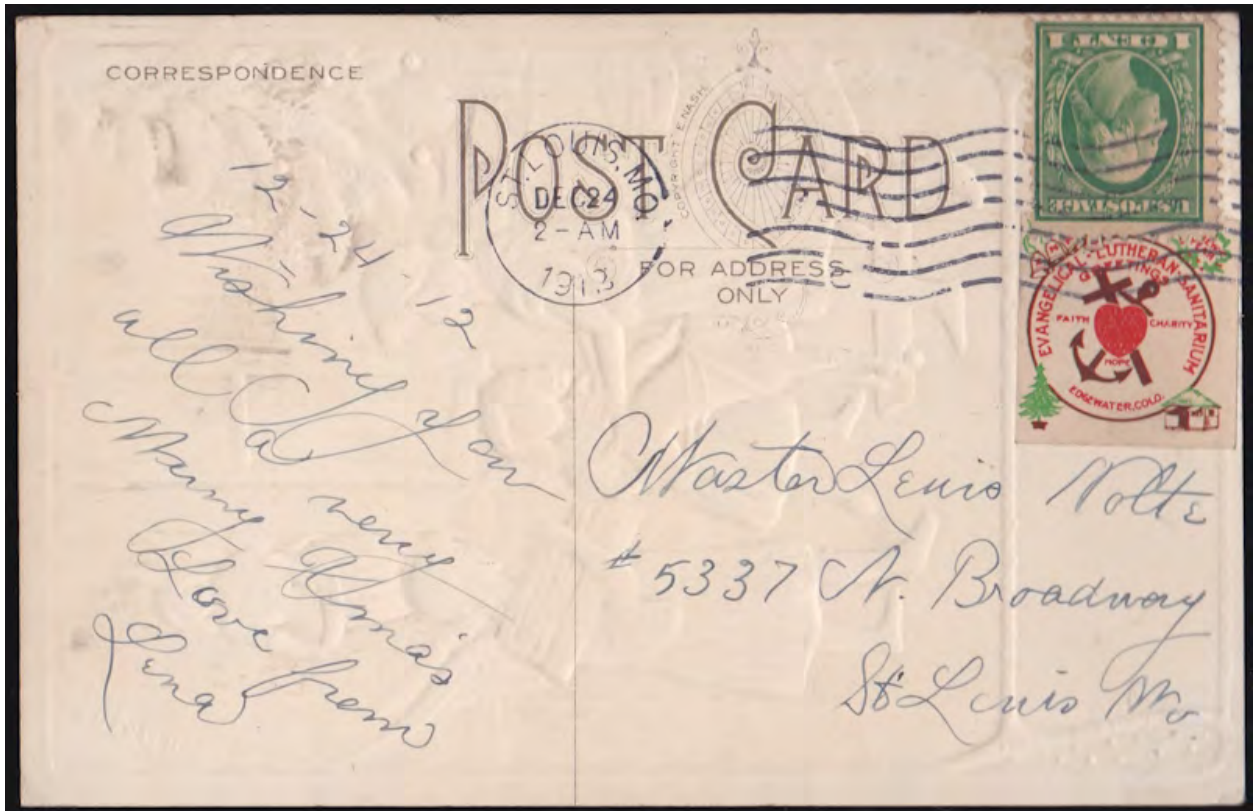 CORRESPONDENCE
POST CARD
COPYRIGHT E. NASH
FOR ADDRESS
ONLY
ST. LOUIS, MO.
DEC 24
2-AM
1912
U.S. POSTAGE
1 CENT 1
EVANGELICAL-LUTHERAN SANITARIUM
GREETINGS
FAITH
CHARITY
HOPE
EDGEWATER, COLO.
12-24-12
Wishing you
all a very
Merry Xmas
Love from
Lena
Master Lewis Nolte
# 5337 N. Broadway
St Louis Mo